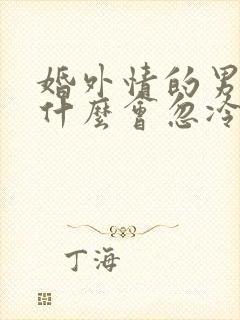 婚外情的男
什麼會忽冷
丁海